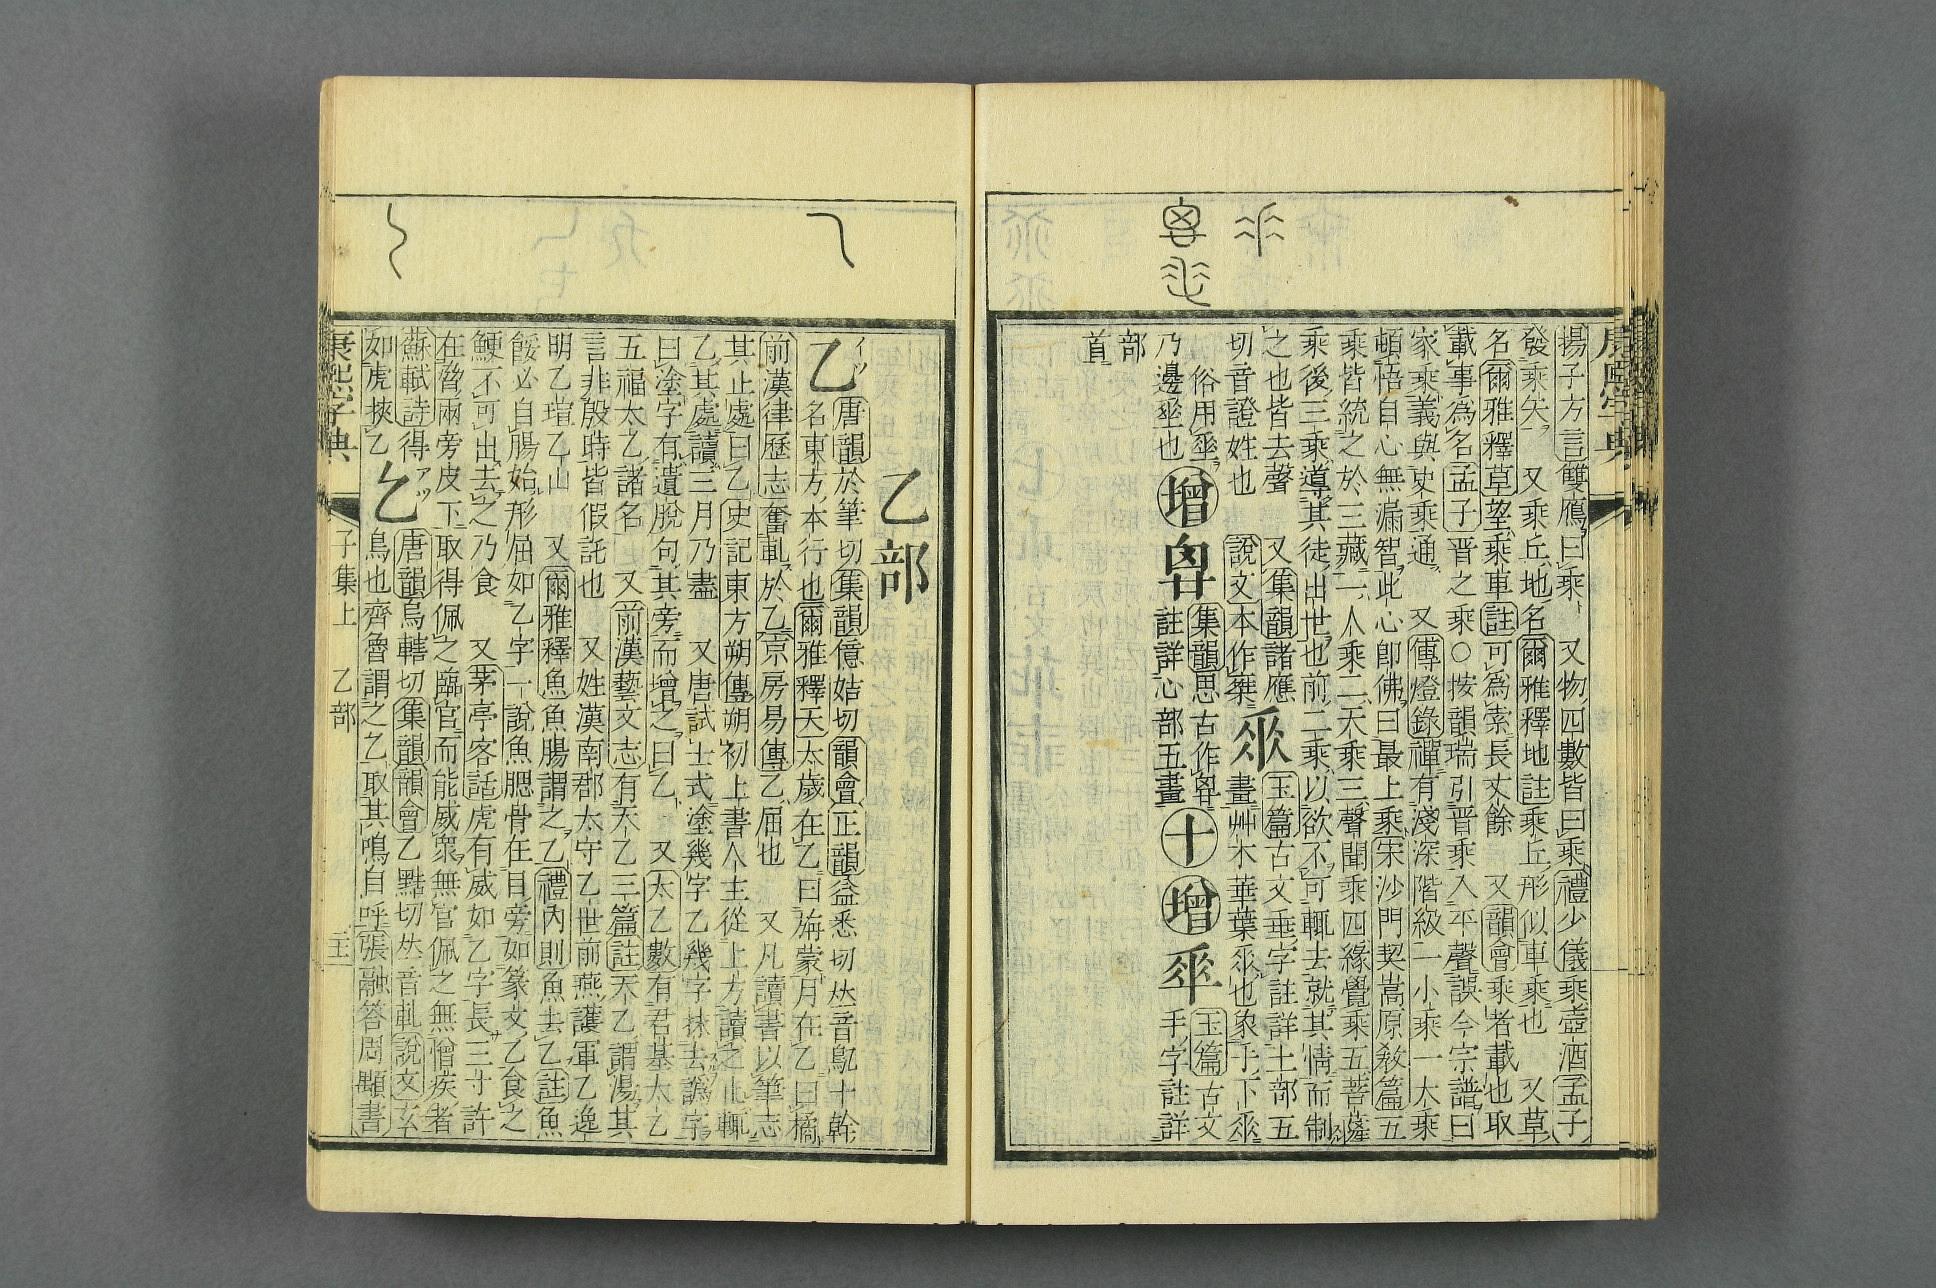 揚子方言雙鴈曰乘 又物四數皆曰乘禮少儀乘壺酒孟子
發乘矢 又乘丘地名爾雅釋地註乘丘形似車乘也 又草
名爾雅釋草望乘車註可爲索長丈餘 又韻會乘者載也取
載事為名孟子晉之乘○按韻瑞引晋乘入平聲誤今宗譜曰
家乘義與史乘通 又傳燈錄禪有淺深階級一小乘一大乘
頓悟自心無漏智此心卽佛曰最上乘宋沙門契嵩原敎篇五
乘皆統之於三藏一人乘二天乘三聲聞乘四緣覺乘五菩薩
乘後三乘導其徒出世也前二乘以欲不可輒去就其情而制
之也皆去聲 又集韻諸應
切音證姓也 說文本作椉
𠂹
玉篇古文垂字註詳土部五
畫艸木華葉𠂹也象于下𠂹
俗用
乃邊
增
集韻思古作
註詳心部五畫
十
增
玉篇古文
手字註詳
部
首
康熙字典
乙部
乙
唐韻於筆切集韻億姞切韻會正韻益悉切𠀤音鳦十幹
名東方木行也爾雅釋天太歲在乙曰旃蒙月在乙曰橘
前漢律歷志奮軋於乙京房易傳乙屈也 又凡讀書以筆志
其止處曰乙史記東方朔傳朔初上書人主從上方讀之止輒
乙其處讀三月乃盡 又唐試士式塗幾字乙幾字抹去譌字
曰塗字有遺脫句其旁而增之曰乙 又太乙數有君基太乙
五福太乙諸名 又前漢藝文志有天乙三篇註天乙謂湯其
言非殷時皆假託也 又姓漢南郡太守乙世前燕護軍乙逸
明乙瑄乙山 又爾雅釋魚魚腸謂之乙禮內則魚去乙註魚
餒必自腸始形屈如乙字一說魚腮骨在目旁如篆文乙食之
鯁不可出去之乃食 又茅亭客話虎有威如乙字長三寸許
在脅兩旁皮下取得佩之臨官而能威衆無官佩之無憎疾者
蘇軾詩得
如虎挾乙
乞
唐韻烏轄切集韻韻會乙黠切𠀤音軋說文玄
鳥也齊魯謂之乙取其鳴自呼張融答周顒書
康熙字典
子集上 乙部